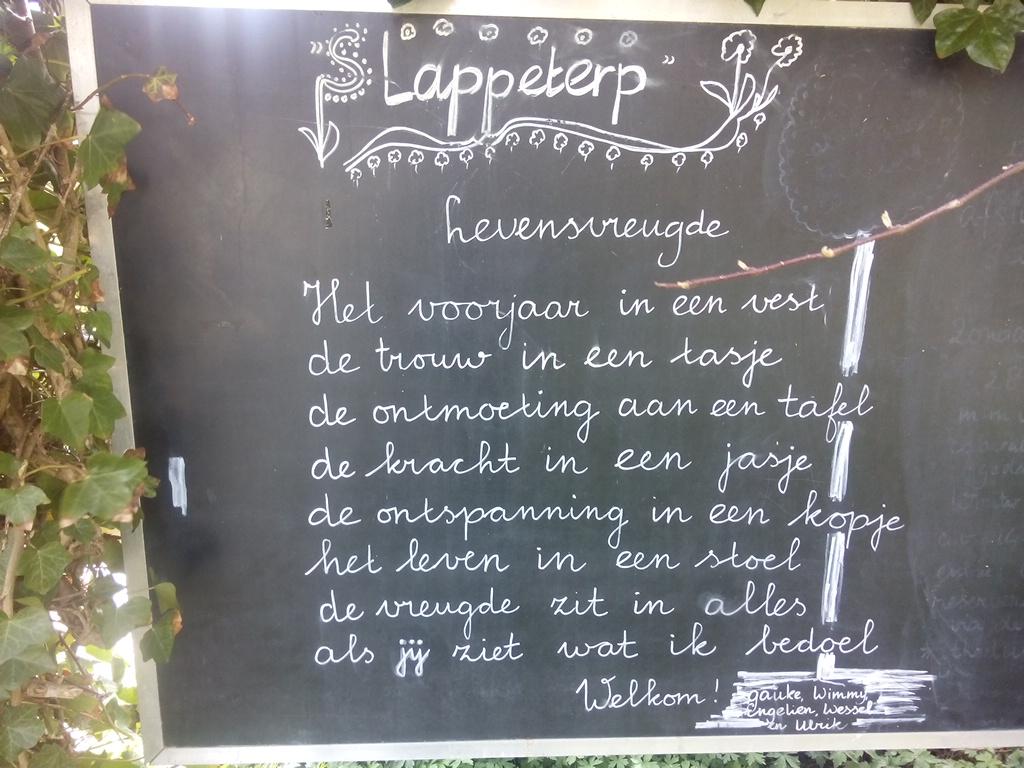 "SLappeterp"
Levensvreugde
Het voorjaar in een vest
de trouw in een tasje
de ontmoeting aan een tafel
de kracht in een jasje
de ontspanning in een kopje
het leven in een stoel
de vreugde zit in alles
als jij ziet wat ik bedoel
Welkom!
gauke, Wimmy,
Engelien, Wessel
en Ulrik